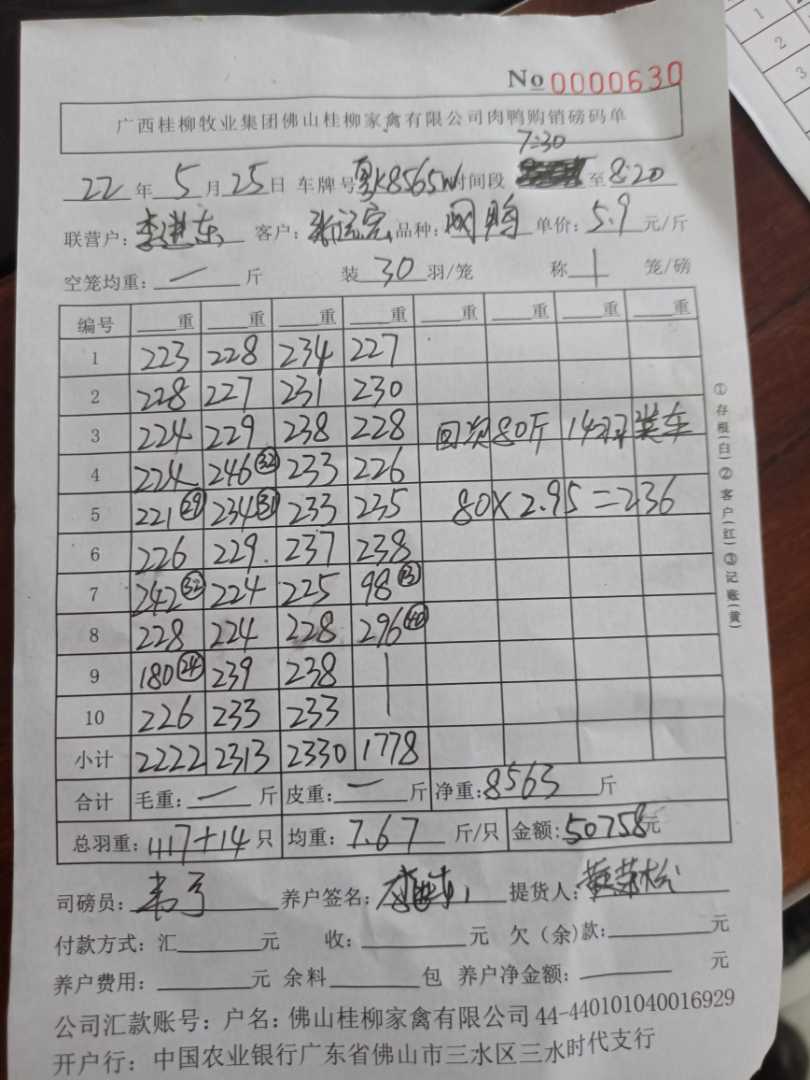 No 0000630
广西桂柳牧业集团佛山桂柳家禽有限公司肉鸭购销磅码单
7:30
22年5月25日 车牌号粤K8565W时间段 至8:20
联营户：李进东 客户： 品种： 鸭 单价：5.9元/斤
空笼均重：一斤 装30羽/笼 称1笼/磅
编号 重 重 重 重 重 重 重 重
1 223 228 234 227
2 228 227 231 230
3 224 229 238 228 回 80斤 14羽 装车
4 224 246 32 233 226
5 221 29 234 31 233 235 80×2.95=236
6 226 229 237 238
7 242 32 224 225 98 13
8 228 224 228 296 40
9 180 24 239 238
10 226 233 233
小计 2222 2313 2330 1778
合计 毛重：一斤 皮重：一斤 净重：8563斤
总羽重：1117+14只 均重：7.67斤/只 金额：50758元
司磅员： 养户签名： 提货人：
付款方式：汇 元 收： 元 欠（余）款： 元
养户费用： 元 余料 包 养户净金额： 元
公司汇款账号：户名：佛山桂柳家禽有限公司 44-440101040016929
开户行：中国农业银行广东省佛山市三水区三水时代支行
①存根(白)②客户(红)③记账(黄)
1
2
3